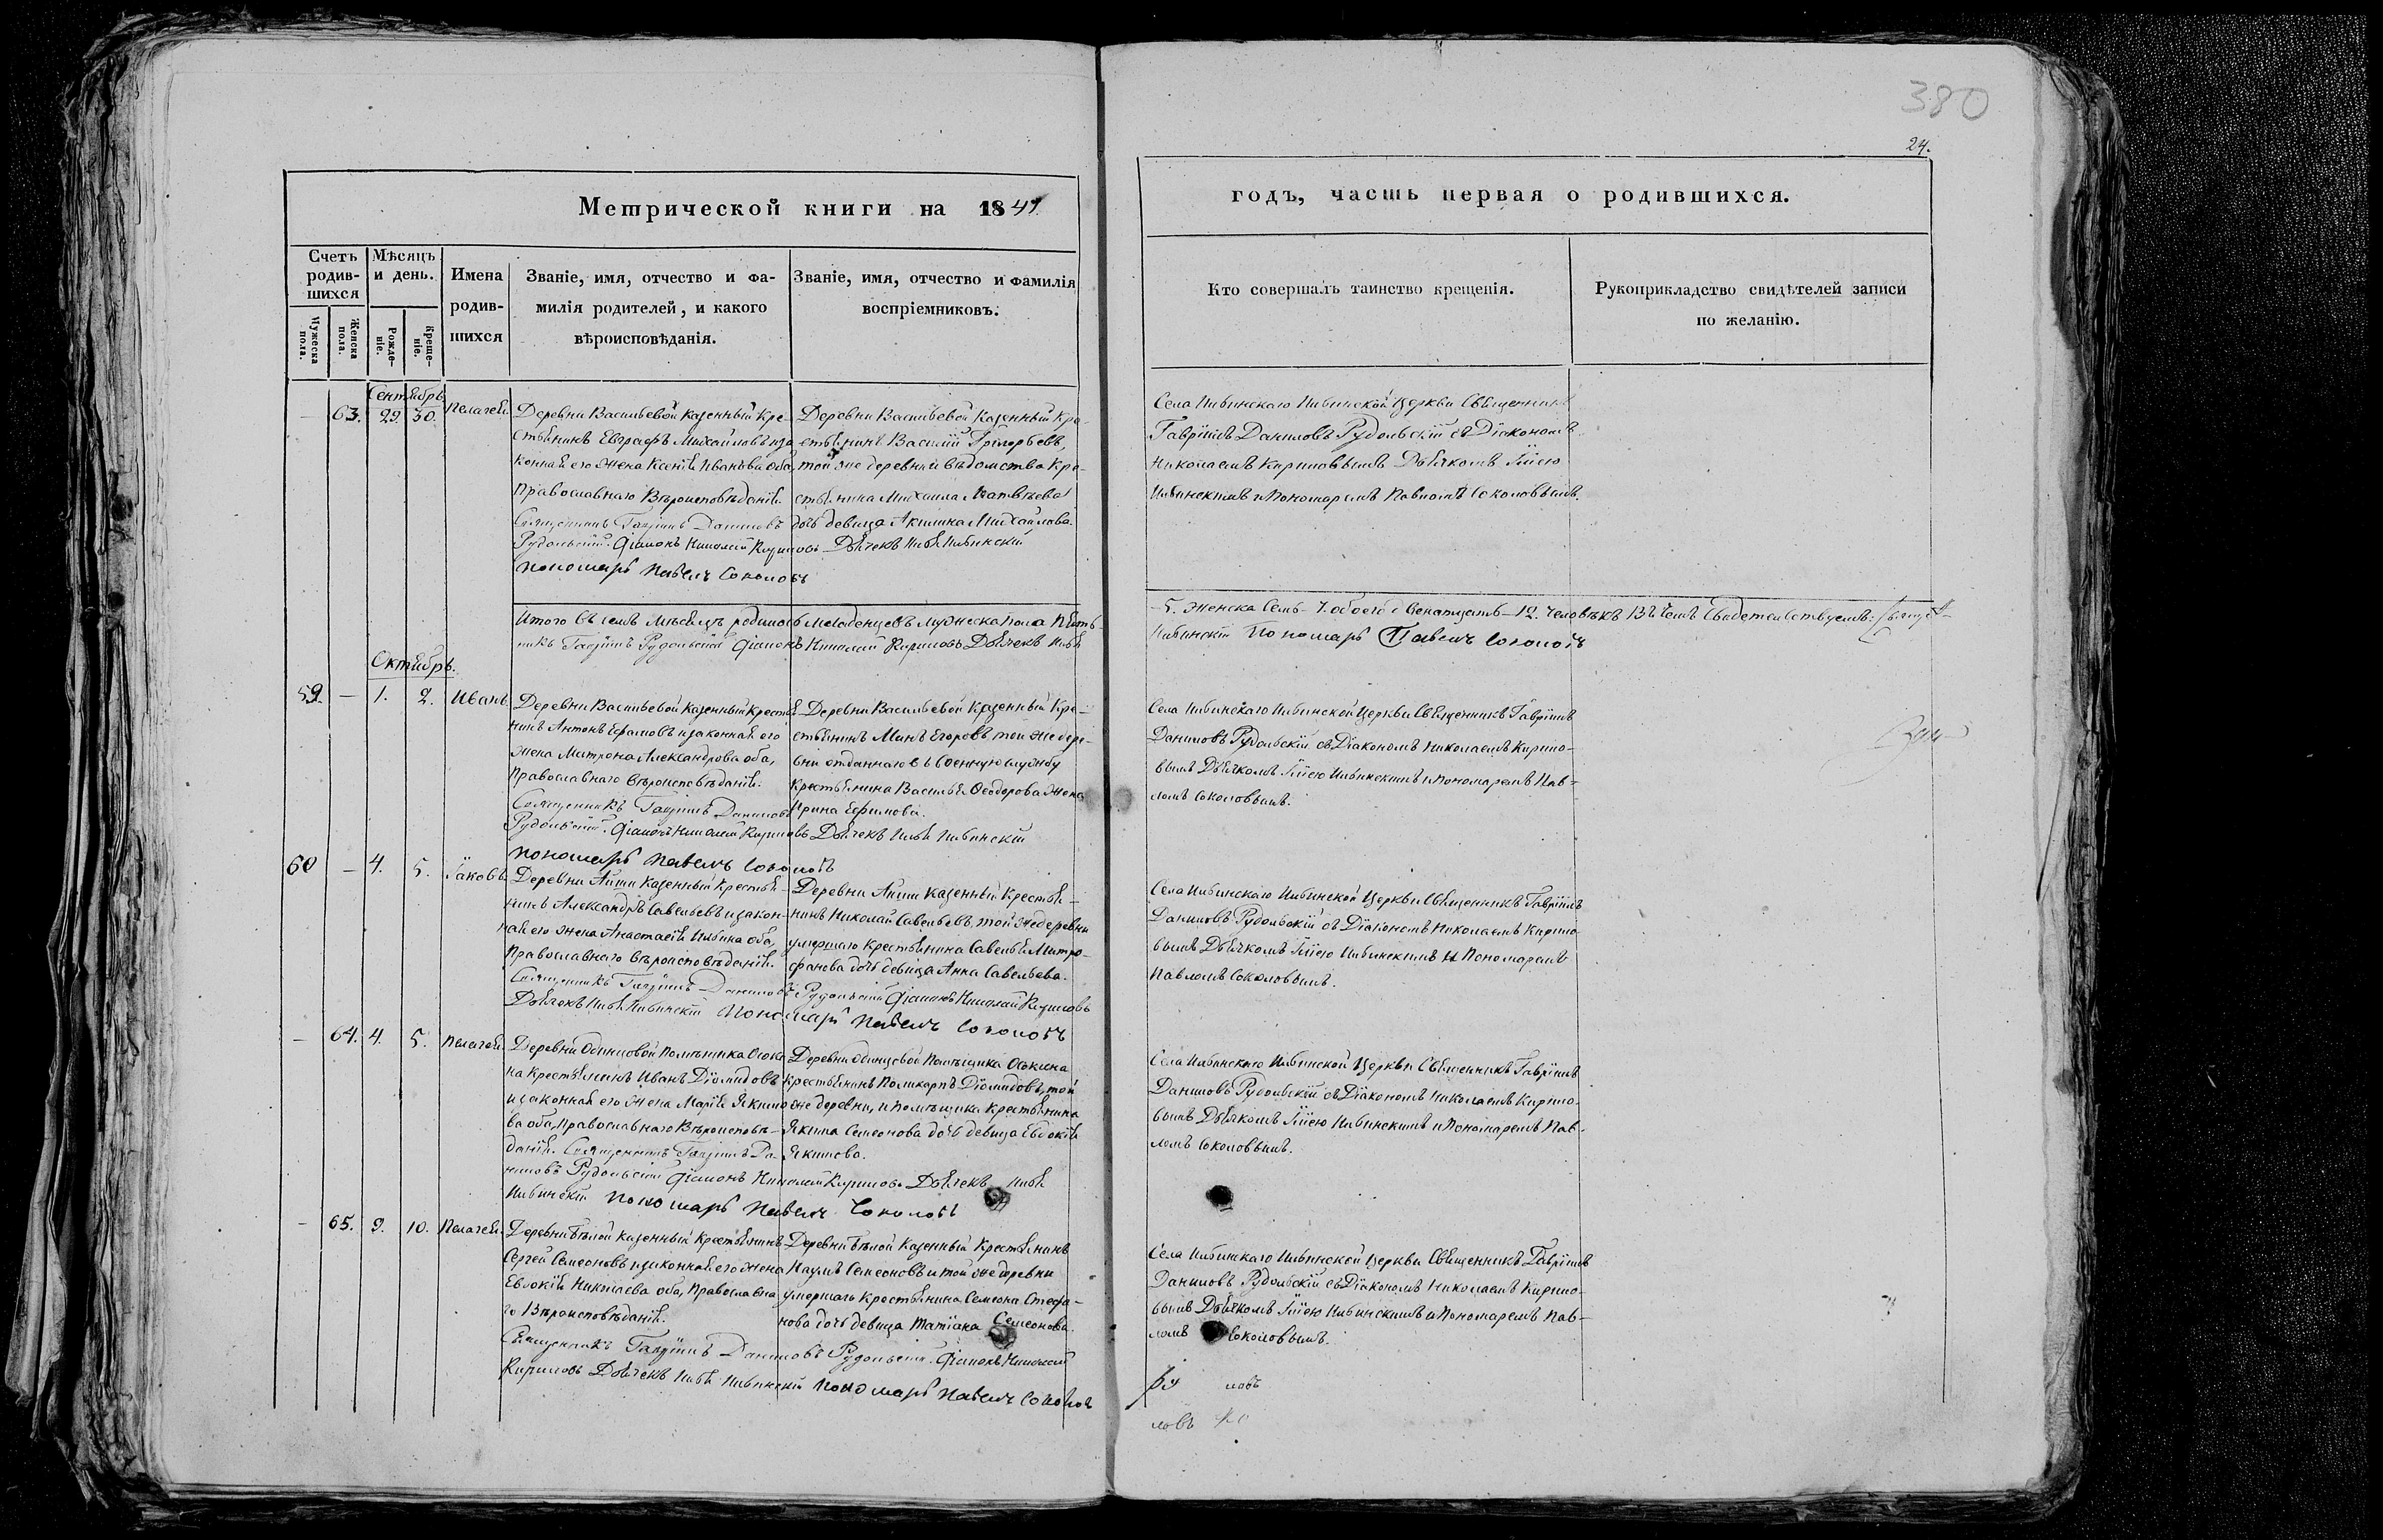 380
24.
Метрической книги на 1841
годъ, часть первая о родившихся.
Счетъ родив-шихся
Мужеска пола.
Женска пола.
Мѣсяцъ и день.
Рожде-ніе.
Креще-ніе.
Имена родив-шихся
Званіе, имя, отчество и фа-
милія родителей, и какого
вѣроисповѣданія.
Званіе, имя, отчество и фамилія
воспріемниковъ.
Кто совершалъ таинство крещенія.
Рукоприкладство свидѣтелей записи
по желанію.
Сентябрь
— 63. 29. 30. Пелагея.
Деревни Васильевой казенный кре-
стьянинъ Евграфъ Михайловъ и за
конная его жена Ксенія Иванова оба,
православнаго вѣроисповѣданія.
Священникъ Гавріилъ Даниловъ
Рудольскій. Діаконъ Николай Кириловъ Дьячекъ Илья Ильинскій
пономарь Павелъ Соколовъ
Деревни Васильевой казенный кре-
стьянинъ Василій Григорьевъ,
той же деревни и вѣдомства кре-
стьянина Михаила Матвѣева
дочь девица Акилина Михайлова.
Села Ильинскаго Ильинской церкви Священникъ
Гавріилъ Даниловъ Рудольскій съ Діакономъ
Николаемъ Кириловымъ Дьячкомъ Иліею
Ильинскимъ и Пономаремъ Павломъ Соколовымъ.
Итого въ семъ мѣсяцѣ родилось младенцевъ мужеска пола пять
— 5. женска семь — 7. обоего двенатцать — 12. человѣкъ въ чемъ свидетельствуемъ: Священ-
никъ Гавріилъ Рудольскій Діаконъ Николай Кириловъ Дьячекъ Илья
Ильинскій Пономарь Павелъ Соколовъ
Октябрь.
59. — 1. 2. Иванъ.
Деревни Васильевой казенный крестья
нинъ Антонъ Ефимовъ и законная его
жена Митрона Александрова оба,
православнаго вѣроисповѣданія.
Священникъ Гавріилъ Даниловъ
Рудольскій. Діаконъ Николай Кириловъ Дьячекъ Илья Ильинскій
пономарь Павелъ Соколовъ
Деревни Васильевой казенный кре-
стьянинъ Минъ Егоровъ, той же дере-
вни отданнаго въ военную службу
крестьянина Василья Ѳеодорова жена
Ирина Ефимова.
Села Ильинскаго Ильинской церкви Священникъ Гавріилъ
Даниловъ Рудольскій съ Діакономъ Николаемъ Кирило-
вымъ Дьячкомъ Иліею Ильинскимъ и Пономаремъ Пав-
ломъ Соколовымъ.
60 — 4. 5. Іаковъ.
Деревни казенный крестья-
нинъ Александръ Савельевъ и закон-
ная его жена Анастасія Ильина оба,
православнаго вѣроисповѣданія.
Священникъ Гавріилъ Даниловъ Рудольскій Діаконъ Николай Кириловъ
Дьячекъ Илья Ильинскій Пономарь Павелъ Соколовъ
Деревни казенный крестья-
нинъ Николай Савельевъ, той же деревни
умершаго крестьянина Савелья Митро-
фанова дочь девица Анна Савельева.
Села Ильинскаго Ильинской церкви Священникъ Гавріилъ
Даниловъ Рудольскій съ Діакономъ Николаемъ Кирило-
вымъ Дьячкомъ Иліею Ильинскимъ и Пономаремъ
Павломъ Соколовымъ.
— 64. 4. 5. Пелагея.
Деревни Одинцовой помѣщика Осоки
на крестьянинъ Иванъ Діомидовъ
и законная его жена Марія Якимо
ва оба, православнаго вѣроисповѣ-
данія. Священникъ Гавріилъ Да-
ниловъ Рудольскій Діаконъ Николай Кириловъ Дьячекъ Илья
Ильинскій пономарь Павелъ Соколовъ
Деревни Одинцовой помѣщика Осокина
крестьянинъ Поликарпъ Діомидовъ, той
же деревни, и помѣщика крестьянина
Якима Семеонова дочь девица Евдокія
Якимова.
Села Ильинскаго Ильинской церкви Священникъ Гавріилъ
Даниловъ Рудольскій съ Діакономъ Николаемъ Кирило-
вымъ Дьячкомъ Иліею Ильинскимъ и Пономаремъ Пав-
ломъ Соколовымъ.
— 65. 9. 10. Пелагея.
Деревни Бѣлой казенный крестьянинъ
Сергей Семеоновъ и законная его жена
Евдокія Николаева оба, православна
го вѣроисповѣданія.
Священникъ Гавріилъ Даниловъ Рудольскій. Діаконъ Николай
Кириловъ Дьячекъ Илья Ильинскій пономарь Павелъ Соколовъ
Деревни Бѣлой казенный крестьянинъ
Наумъ Семеоновъ и той же деревни
умершаго крестьянина Семеона Стефа-
нова дочь девица Татіана Семеонова.
Села Ильинскаго Ильинской церкви Священникъ Гавріилъ
Даниловъ Рудольскій съ Діакономъ Николаемъ Кирило-
вымъ Дьячкомъ Иліею Ильинскимъ и Пономаремъ Пав-
ломъ Соколовымъ.
ловъ
ловъ